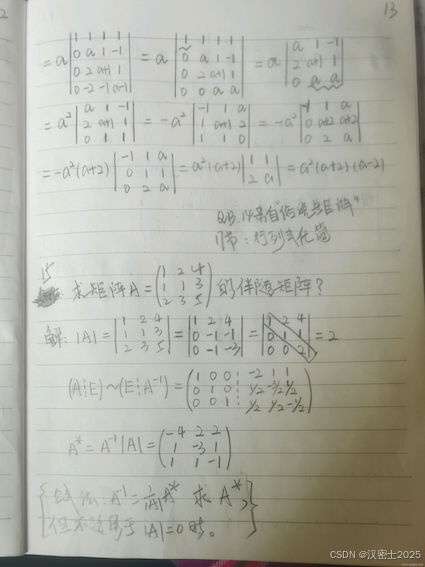 13
= a | 1 1 1 1 ; 0 a 1 -1 ; 0 2 a+1 1 ; 0 -2 -1 a-1 | = a | 1 1 1 1 ; 0 a 1 -1 ; 0 2 a+1 1 ; 0 0 a a | = a | a 1 -1 ; 2 a+1 1 ; 0 a a |
= a² | a 1 -1 ; 2 a+1 1 ; 0 1 1 | = -a² | -1 1 a ; 1 a+1 2 ; 1 1 0 | = -a² | -1 1 a ; 0 a+2 a+2 ; 0 2 a |
= -a²(a+2) | -1 1 a ; 0 1 1 ; 0 2 a | = a²(a+2) | 1 1 ; 2 a | = a²(a+2)(a-2)
15
求矩阵A = ( 1 2 4 ; 1 1 3 ; 2 3 5 ) 的伴随矩阵?
解: |A| = | 1 2 4 ; 1 1 3 ; 2 3 5 | = | 1 2 4 ; 0 -1 -1 ; 0 -1 -3 | = | 1 2 4 ; 0 1 1 ; 0 0 2 | = 2
(A⋮E) ~ (E⋮A⁻¹) = ( 1 0 0 ⋮ -2 1 1 ; 0 1 0 ⋮ 1/2 -3/2 1/2 ; 0 0 1 ⋮ 1/2 1/2 -1/2 )
A* = A⁻¹|A| = ( -4 2 2 ; 1 -3 1 ; 1 1 -1 )
法: A⁻¹ = 1/|A| A* 求 A*,
但不适用于 |A|=0 时。
CSDN @汉密士2025